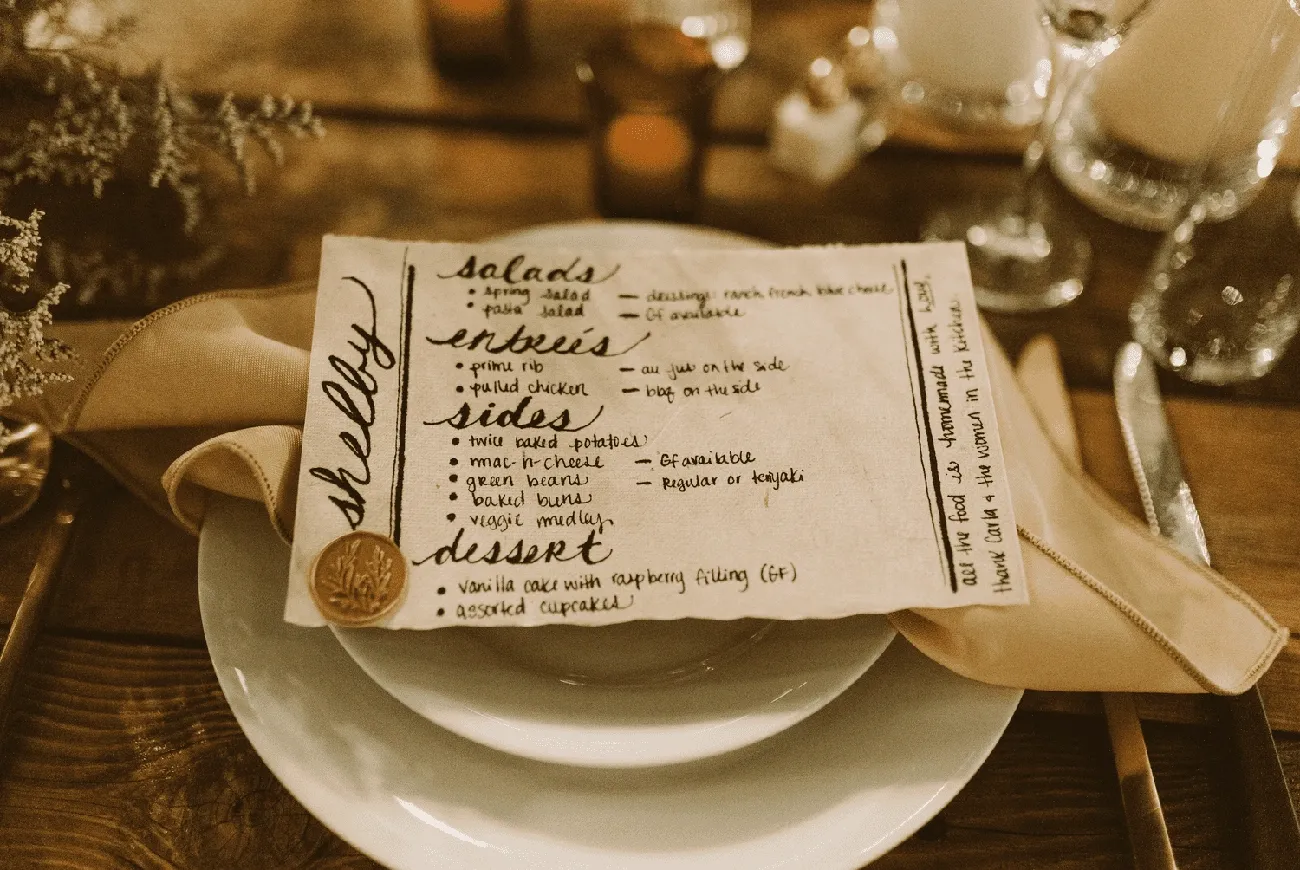 shelby
salads
• spring salad — dressings: ranch french blue cheese
• pasta salad — GF available
entreés
• prime rib — au jus on the side
• pulled chicken — bbq on the side
sides
• twice baked potatoes
• mac-n-cheese — GF available
• green beans — Regular or teriyaki
• baked buns
• veggie medley
dessert
• vanilla cake with raspberry filling (GF)
• assorted cupcakes
all the food is homemade with love,
thank Carla & the women in the kitchen